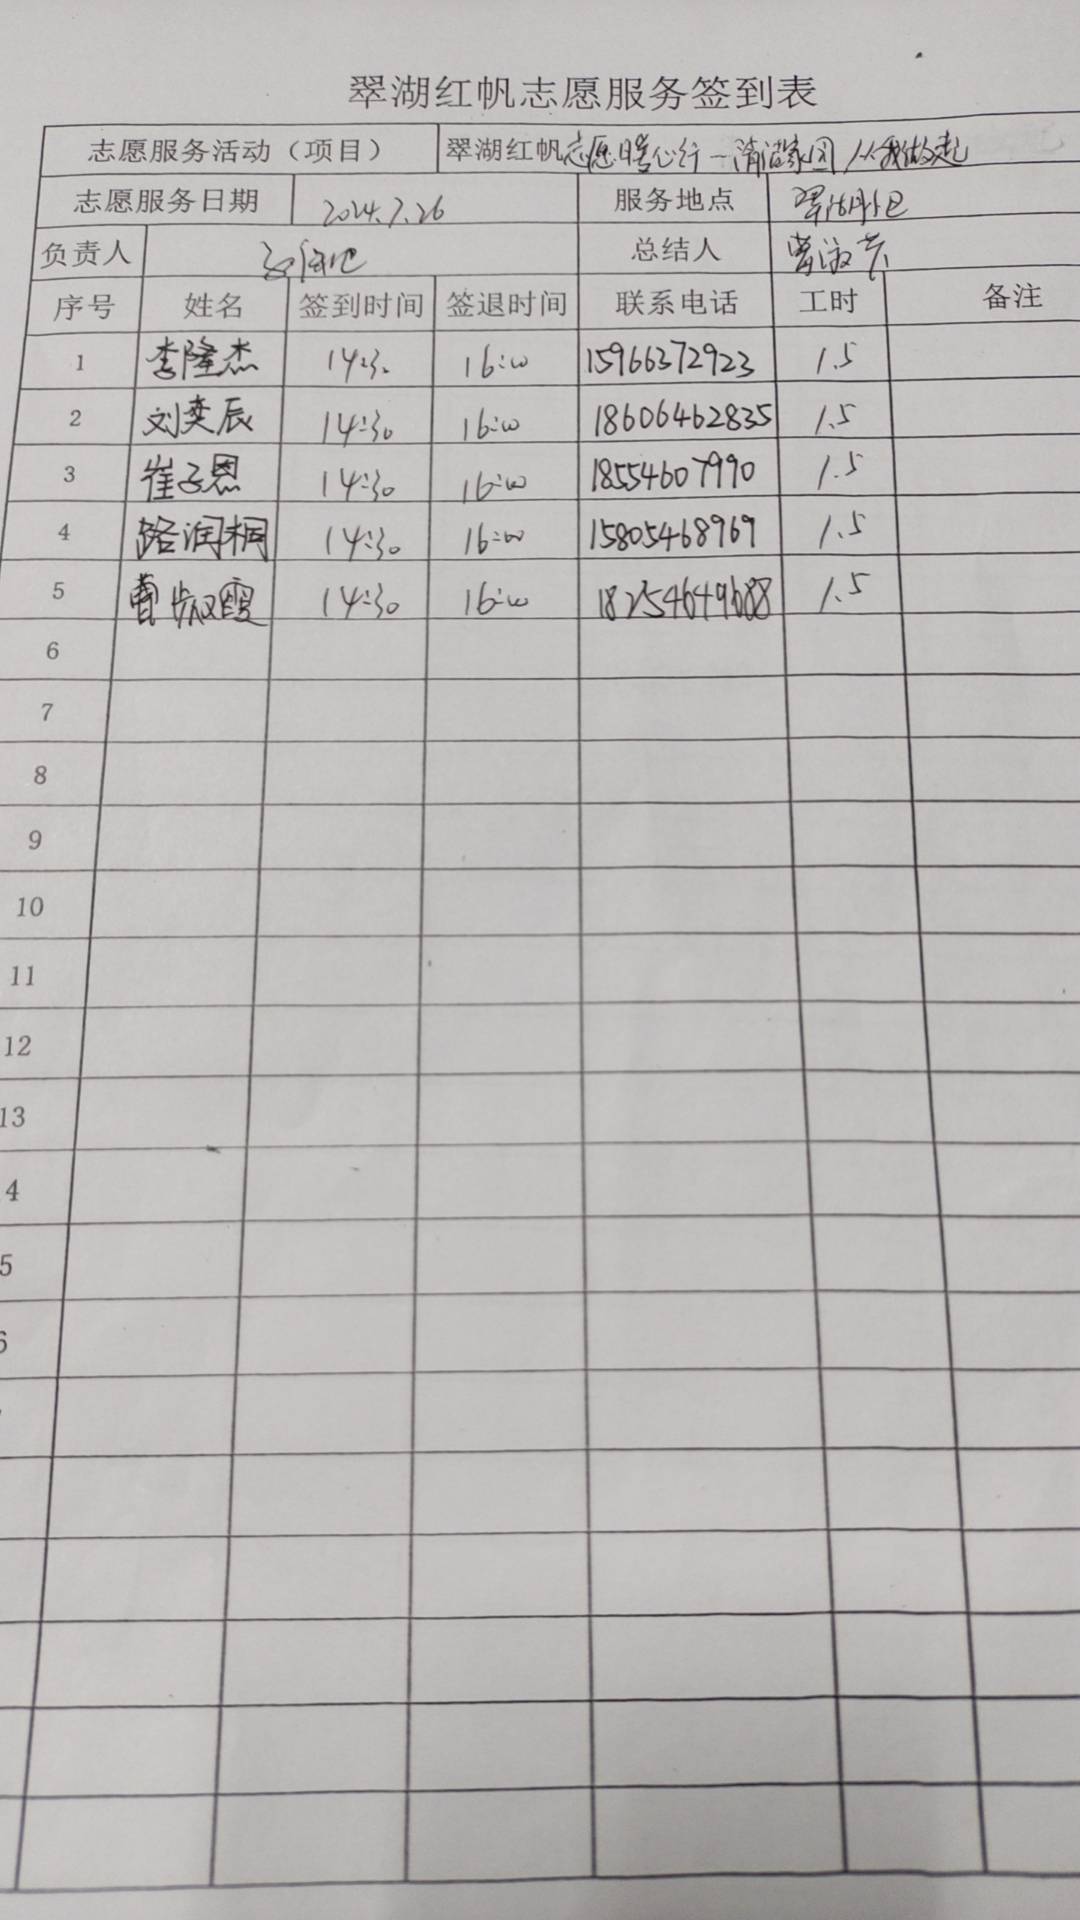 翠湖红帆志愿服务签到表
志愿服务活动（项目） 翠湖红帆志愿暖心行一清洁家园 从我做起
志愿服务日期 2024.7.26 服务地点 翠湖社区
负责人 总结人
序号 姓名 签到时间 签退时间 联系电话 工时 备注
1 李隆杰 14:30 16:00 15966372923 1.5
2 刘奕辰 14:30 16:00 18606462835 1.5
3 崔子恩 14:30 16:00 18554607990 1.5
4 路润桐 14:30 16:00 15805468969 1.5
5 曹淑霞 14:30 16:00 18254649688 1.5
6
7
8
9
10
11
12
13
4
5
6